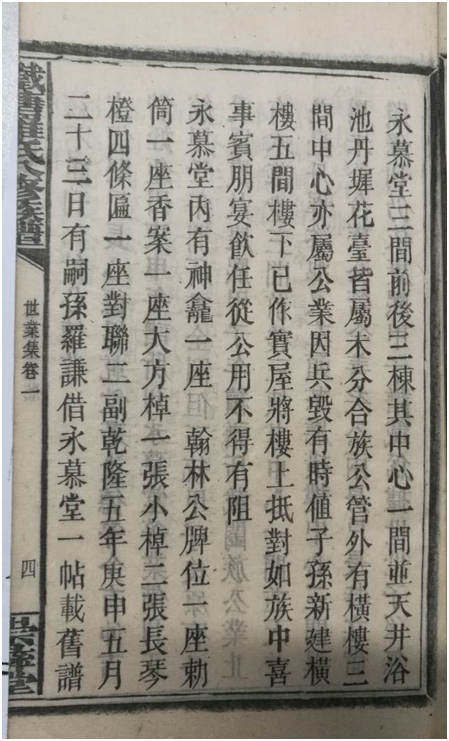 永慕堂三間前後三棟其中心一間並天井浴
池丹墀花臺皆屬未分合族公管外有橫樓三
間中心亦屬公業因兵毀有時値子孫新建橫
樓五間樓下已作實屋將樓上抵對如族中喜
事賓朋宴飲任從公用不得有阻
永慕堂內有神龕一座 翰林公牌位一座勅
筒一座香案一座大方棹一張小棹二張長琴
橙四條匾一座對聯二副乾隆五年庚申五月
二十三日有嗣孫羅謙借永慕堂一帖載舊譜
世業集卷一
四